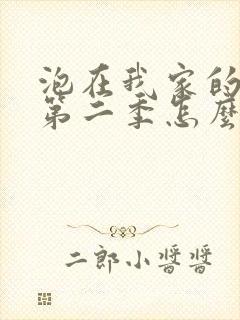 泡在我家的
第二季怎麼
二郎小醬醬